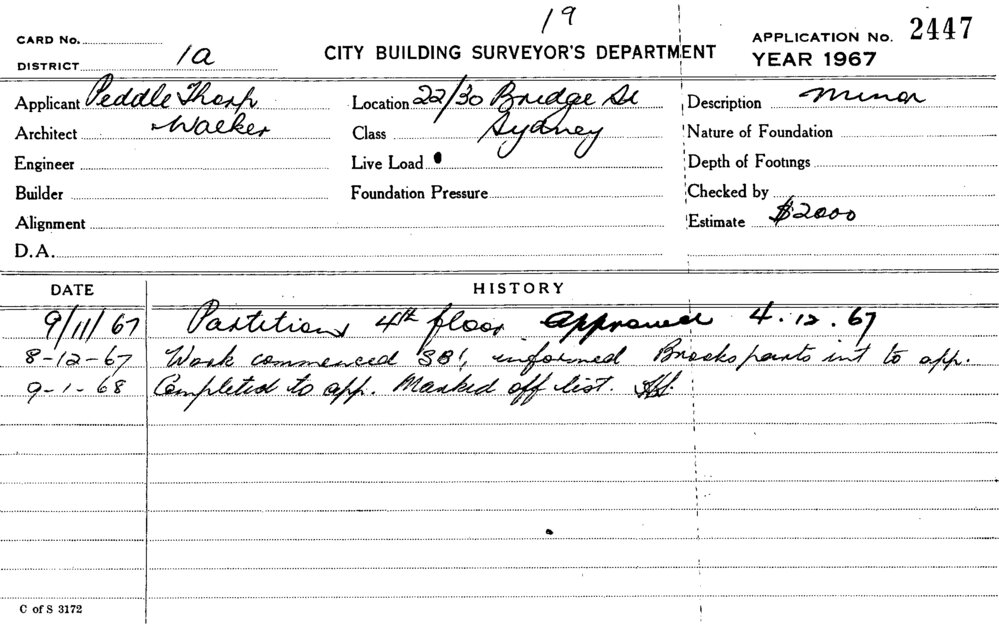 19
CARD No.
DISTRICT 1a
CITY BUILDING SURVEYOR'S DEPARTMENT
APPLICATION No. 2447
YEAR 1967
Applicant Peddle Thorp
Location 22/30 Bridge St
Description Minor
Architect Walker
Class Sydney
Nature of Foundation
Engineer
Live Load
Depth of Footings
Builder
Foundation Pressure
Checked by
Alignment
Estimate $2000
D.A.
DATE HISTORY
9/11/67 Partitions 4th floor approved 4.12.67
8-12-67 Work commenced informed int to app.
9-1-68 Completed to app. Marked off list.
C of S 3172